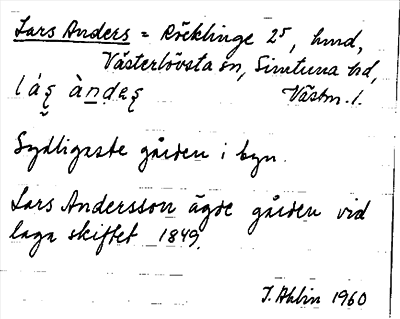 Lars Anders = Röcklinge 2⁵, hmd,
Västerlövsta sn, Simtuna hd,
Västm. l.
Sydligaste gården i byn.
Lars Andersson ägde gården vid
laga skiftet 1849.
J. Ahlin 1960